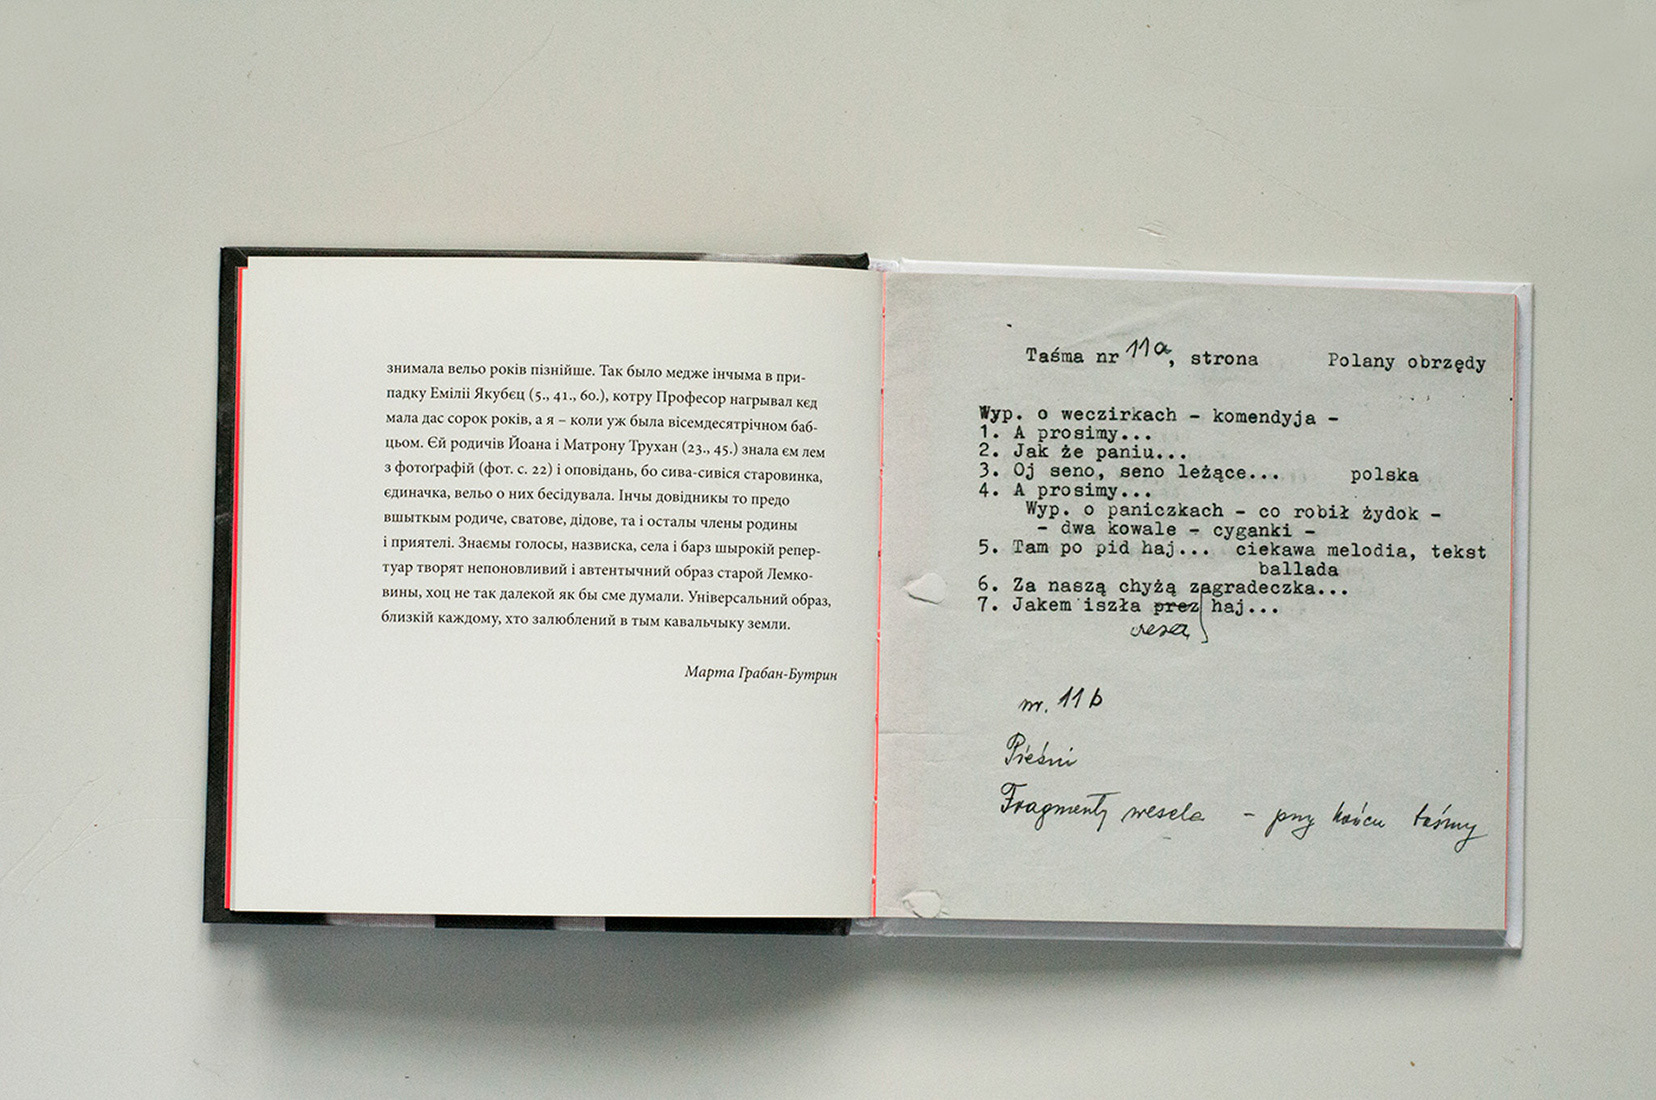 знимала вельо років пізнійше. Так было медже інчыма в при-
падку Емілії Якубєц (5., 41., 60.), котру Професор награвал кєд
мала дас сорок років, а я – коли уж была вісемдесятрічном баб-
цьом. Єй родичів Йоана і Матрону Трухан (23., 45.) знала єм лем
з фотоґрафій (фот. с. 22) і оповідань, бо сива-сивіся старовинка,
єдиначка, вельо о них бесідувала. Інчы довідникы то предо
вшыткым родиче, сватове, дідове, та і осталы члены родины
і приятелі. Знаємы голосы, назвиска, села і барз шырокій репер-
туар творят непоновливий і автентычний образ старой Лемко-
вины, хоц не так далекой як бы сме думали. Універсальний образ,
близкій каждому, хто залюблений в тым кавальчыку земли.
Марта Грабан-Бутрин
Taśma nr 11a, strona Polany obrzędy
Wyp. o weczirkach - komendyja -
1. A prosimy...
2. Jak że paniu...
3. Oj seno, seno leżące... polska
4. A prosimy...
Wyp. o paniczkach - co robił żydok -
- dwa kowale - cyganki -
5. Tam po pid haj... ciekawa melodia, tekst
ballada
6. Za naszą chyżą zagradeczka...
7. Jakem iszła prez haj...
nr. 11 b
Pieśni
Fragmenty wesela - przy końcu taśmy